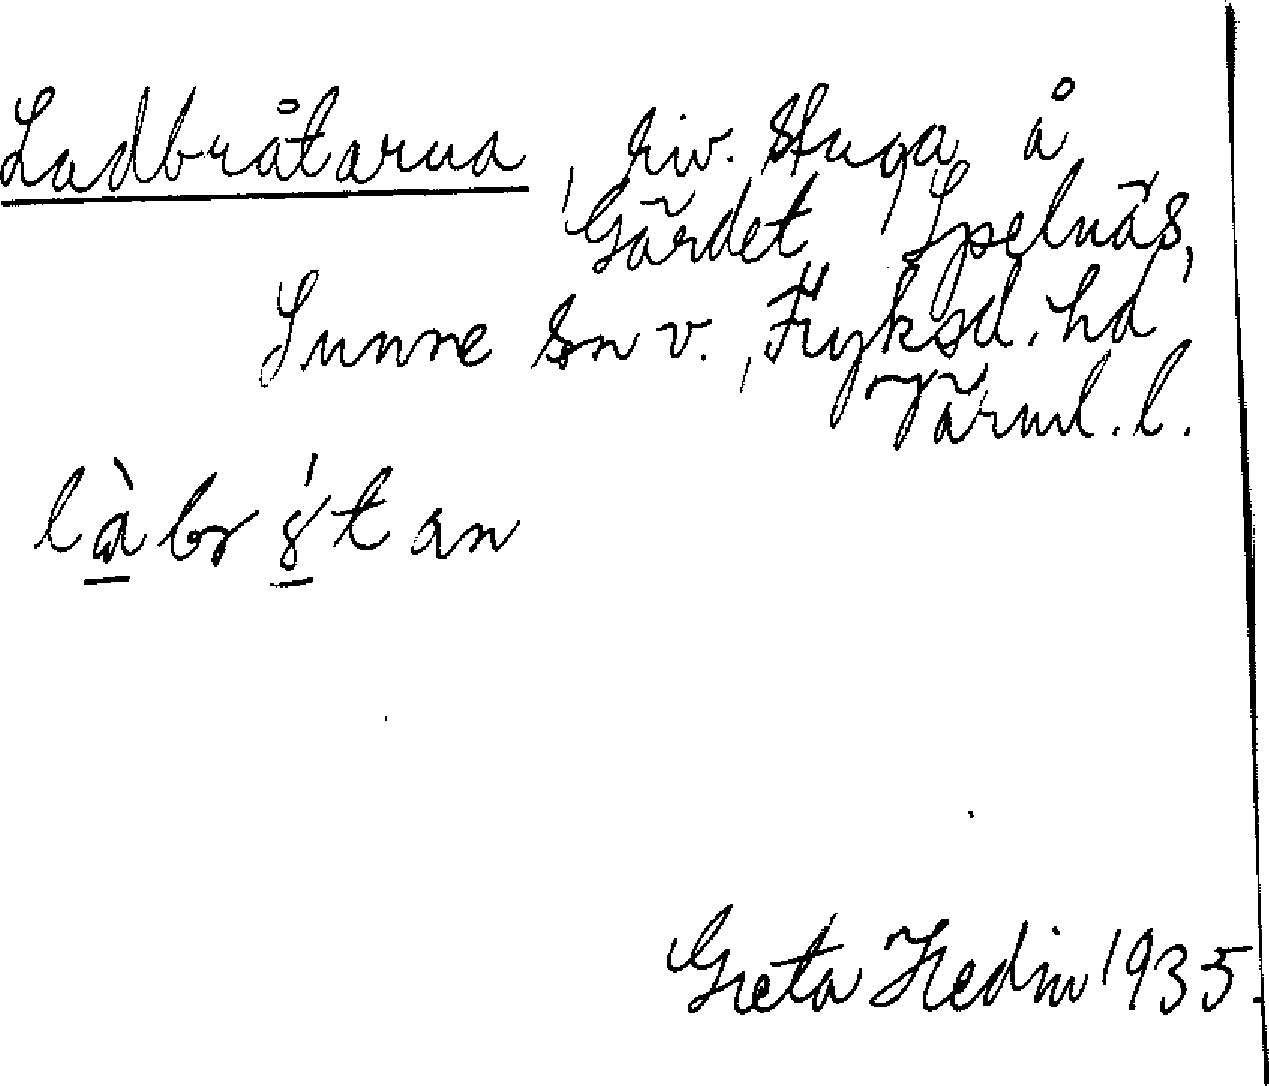 Ladbråtarna, riv. stuga å
Gärdet, Spelnäs,
Sunne sn v., Fryksd. hd
Värml. l.
làbr8́tan
Greta Hedin 1935.